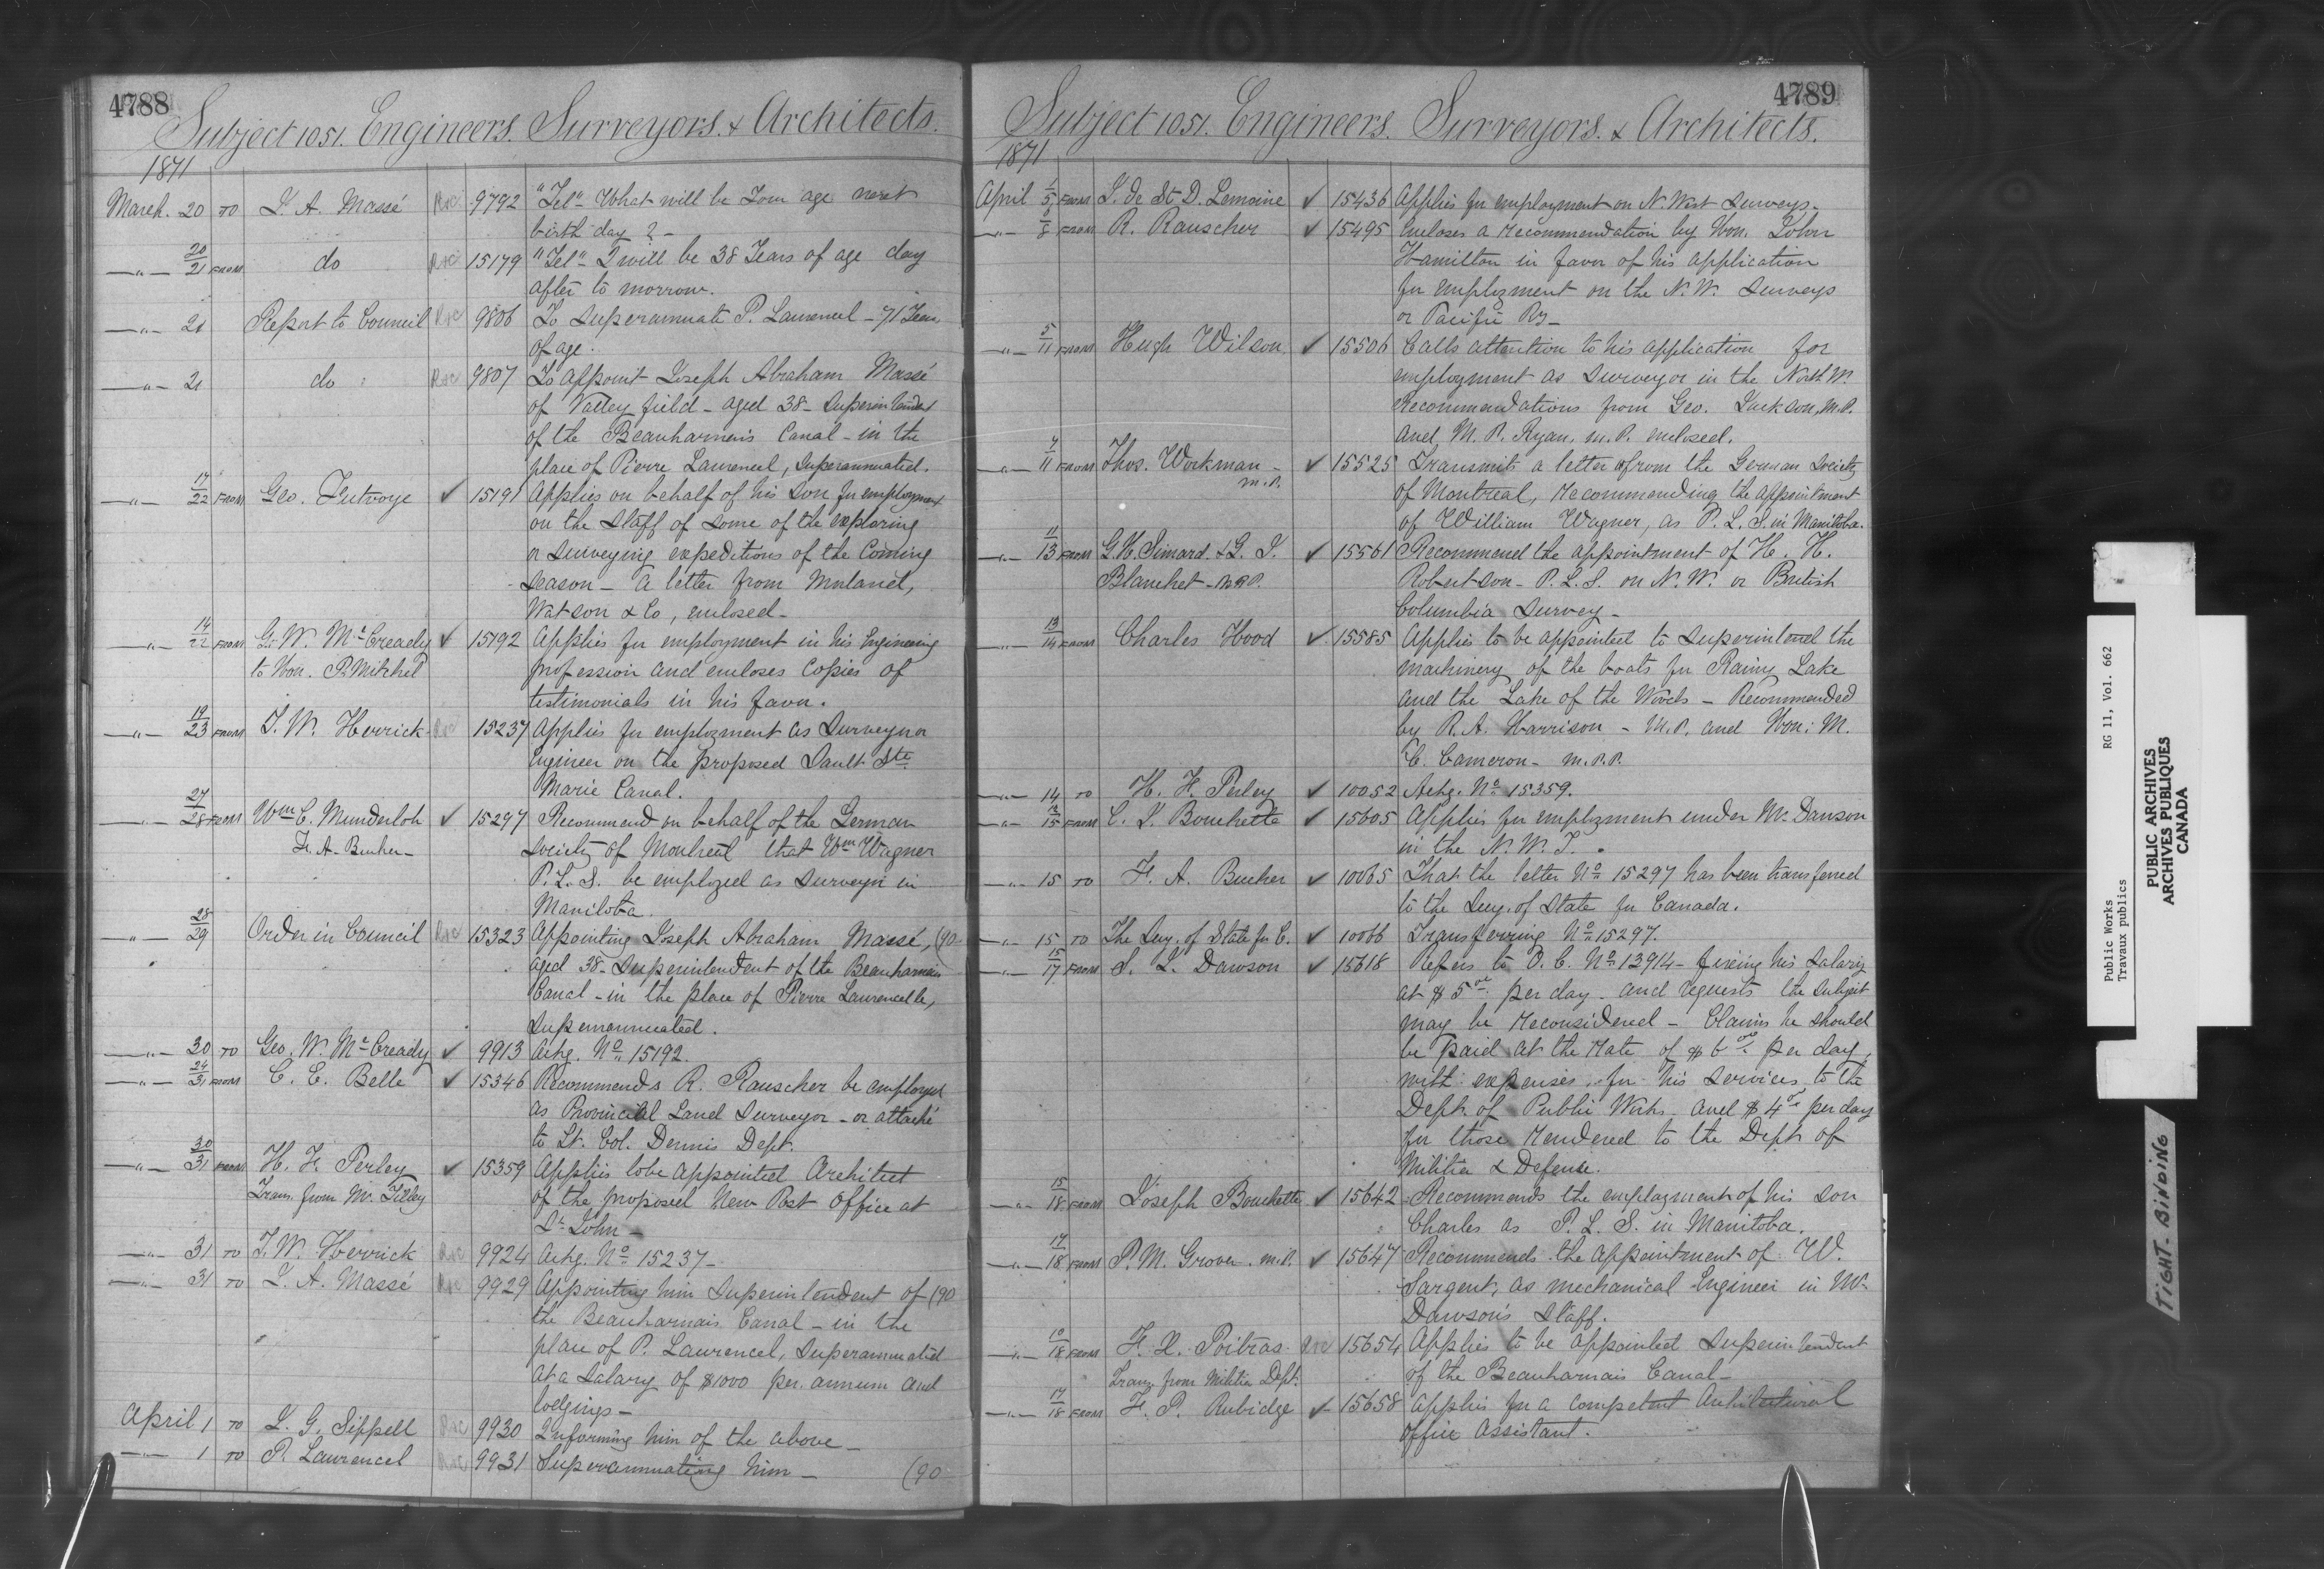 4788
Subject 1051. Engineers. Surveyors. & Architects.
1871
March. 20 TO J. A. Massé Rec 9792 "Tel" What will be Your age next
birth day ? –
–"– 20/21 FROM do Rec 15179 "Tel" I will be 38 Years of age day
after to morrow.
–"– 21 Report to Council Rec 9806 To Superannuate P. Laurencel – 71 Years
of age.
–"– 21 do Rec 9807 To appoint Joseph Abraham Massé
of Valley field – aged 38 – Superintendent
of the Beauharnois Canal – in the
place of Pierre Laurencel, Superannuated.
–"– 17/22 FROM Geo. Futvoye ✓ 15191 Applies on behalf of his Son for employment
on the Staff of some of the exploring
or surveying expeditions of the Coming
season – A letter from
Watson & Co, enclosed –
–"– 14/22 FROM G. W. McCready ✓ 15192 Applies for employment in his Engineering
to Hon. P. Mitchel profession and encloses Copies of
testimonials in his favor.
–"– 19/23 FROM T. W. Herrick Rec 15237 Applies for employment as Surveyor or
Engineer on the proposed Sault Ste
Marie Canal.
–"– 27/28 FROM Wm C. Munderloh ✓ 15297 Recommend on behalf of the German
F. A. Bucher – society of Montreal that Wm Wagner
P. L. S. be employed as Surveyor in
Manitoba.
–"– 28/29 Order in Council Rec 15323 Appointing Joseph Abraham Massé, (90
aged 38 – Superintendent of the Beauharnois
Canal – in the place of Pierre Laurencelle,
Superannuated.
–"– 30 TO Geo. W. McCready ✓ 9913 Ackg. No 15192.
–"– 24/31 FROM C. E. Belle ✓ 15346 Recommends R. Rauscher be employed
as Provincial Land Surveyor – or attaché
to Lt. Col. Dennis Dept.
–"– 30/31 FROM H. F. Perley ✓ 15359 Applies to be appointed Architect
Trans. from Mr. Tilley of the proposed New Post Office at
St John –
–"– 31 TO T. W. Herrick Rec 9924 Ackg. No 15237 –
–"– 31 TO J. A. Massé Rec 9929 Appointing him Superintendent of (90
the Beauharnais Canal – in the
place of P. Laurencel, Superannuated
at a Salary of $1000 per. annum and
lodgings –
April 1 TO J. G. Sippell Rec 9930 Informing him of the above –
–"– 1 TO P. Laurencel Rec 9931 Superannuating him – (90
4789
Subject 1051. Engineers. Surveyors. & Architects.
1871
April 1/5 FROM J. de St D. Lemoine ✓ 15436 Applies for employment on N. West Surveys –
–"– 8/8 FROM R. Rauscher ✓ 15495 Encloses a recommendation by Hon. John
Hamilton in favor of his application
for employment on the N. W. Surveys
or Pacific Ry –
–"– 5/11 FROM Hugh Wilson ✓ 15506 Calls attention to his application for
employment as Surveyor in the North W.
Recommendations from Geo. Jackson, M.P.
and M. P. Ryan. M.P. enclosed.
–"– 7/11 FROM Thos. Workman – ✓ 15525 Transmits a letter from the German Society
M.P. of Montreal, recommending the appointment
of William Wagner, as P. L. S. in Manitoba.
–"– 11/13 FROM G. H. Simard & G. J. ✓ 15561 Recommend the appointment of H. H.
Blanchet – MPP. Robertson – P. L. S. on N. W. or British
Columbia Survey –
–"– 13/14 FROM Charles Hood ✓ 15585 Applies to be appointed to Superintend the
machinery of the boats for Rainy Lake
and the Lake of the Woods – Recommended
by R. A. Harrison – M.P. and Hon: M.
C. Cameron – M.P.P.
–"– 14 TO H. F. Perley ✓ 10052 Ackg. No 15359.
–"– 13/15 FROM C. J. Bouchette ✓ 15605 Applies for employment under Mr Dawson
in the N. W. T.
–"– 15 TO F. A. Bucher ✓ 10065 That the letter No 15297 has been transferred
to the Secy. of State for Canada.
–"– 15 TO The Secy. of State for C. ✓ 10066 Transferring No 15297.
–"– 15/17 FROM S. J. Dawson ✓ 15618 Refers to O. C. No 13914 – fixing his Salary
at $5 00 per day – and requests the Subject
may be reconsidered – Claims he should
be paid at the rate of $6 00 per day,
with expenses for his Services to the
Dept of Public Works and $4 00 per day
for those rendered to the Dept of
Militia & Defense.
–"– 15/18 FROM Joseph Bouchette ✓ 15642 Recommends the employment of his Son
Charles as P. L. S. in Manitoba.
–"– 17/18 FROM P. M. Grover. M.P. ✓ 15647 Recommends the appointment of W.
Sargent, as mechanical Engineer in Mr
Dawson's Staff.
–"– 10/18 FROM F. X. Poitras Rec 15654 Applies to be appointed Superintendent
Trans. from Militia Dept. of the Beauharnais Canal –
–"– 17/18 FROM F. P. Rubidge ✓ 15658 Applies for a Competent Architectural
office Assistant.
Public Works RG 11, Vol. 662
Travaux publics
PUBLIC ARCHIVES
ARCHIVES PUBLIQUES
CANADA
TIGHT BINDING